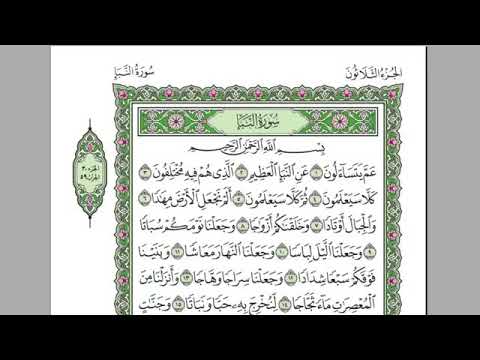 الجزء الثلاثون
سورة النبإ
سُورَةُ النَّبَإِ
بِسْمِ اللَّهِ الرَّحْمَٰنِ الرَّحِيمِ
عَمَّ يَتَسَاءَلُونَ ١ عَنِ النَّبَإِ الْعَظِيمِ ٢ الَّذِي هُمْ فِيهِ مُخْتَلِفُونَ ٣
كَلَّا سَيَعْلَمُونَ ٤ ثُمَّ كَلَّا سَيَعْلَمُونَ ٥ أَلَمْ نَجْعَلِ الْأَرْضَ مِهَٰدًا ٦
وَالْجِبَالَ أَوْتَادًا ٧ وَخَلَقْنَٰكُمْ أَزْوَٰجًا ٨ وَجَعَلْنَا نَوْمَكُمْ سُبَاتًا
٩ وَجَعَلْنَا الَّيْلَ لِبَاسًا ١٠ وَجَعَلْنَا النَّهَارَ مَعَاشًا ١١ وَبَنَيْنَا
فَوْقَكُمْ سَبْعًا شِدَادًا ١٢ وَجَعَلْنَا سِرَاجًا وَهَّاجًا ١٣ وَأَنزَلْنَا مِنَ
الْمُعْصِرَٰتِ مَاءً ثَجَّاجًا ١٤ لِّنُخْرِجَ بِهِ حَبًّا وَنَبَاتًا ١٥ وَجَنَّٰتٍ
الجزء ٣٠
الحزب ٥٩